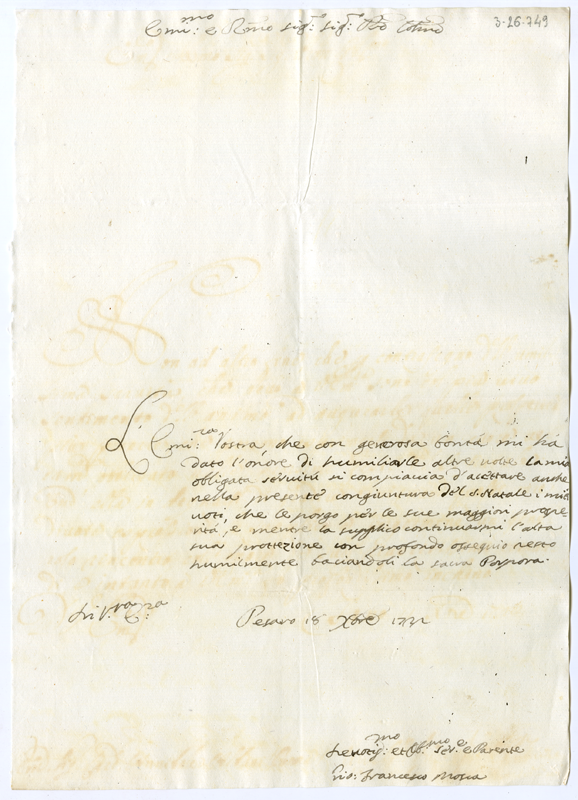 3-26.749
Emi:mo e Rmo sig:r sig:r P̄ro Colmo
L'Emi:za Vostra, che con generosa bontà mi ha
dato l'onore di humiliarle altre volte la mia
obligata servitù si compiaccia d'accettare anche
nella presente congiuntura del s. Natale i miei
voti, che le porgo per le sue maggiori prospe-
rità, e mentre la supplico continuarmi l'alta
sua protezione con profondo ossequio resto
humilmente baciandoli la sacra Porpora.
Pesaro 18 Xbre
Devotis:mo et Ob:mo Ser:e e Parente
Gio: Francesco Mosca